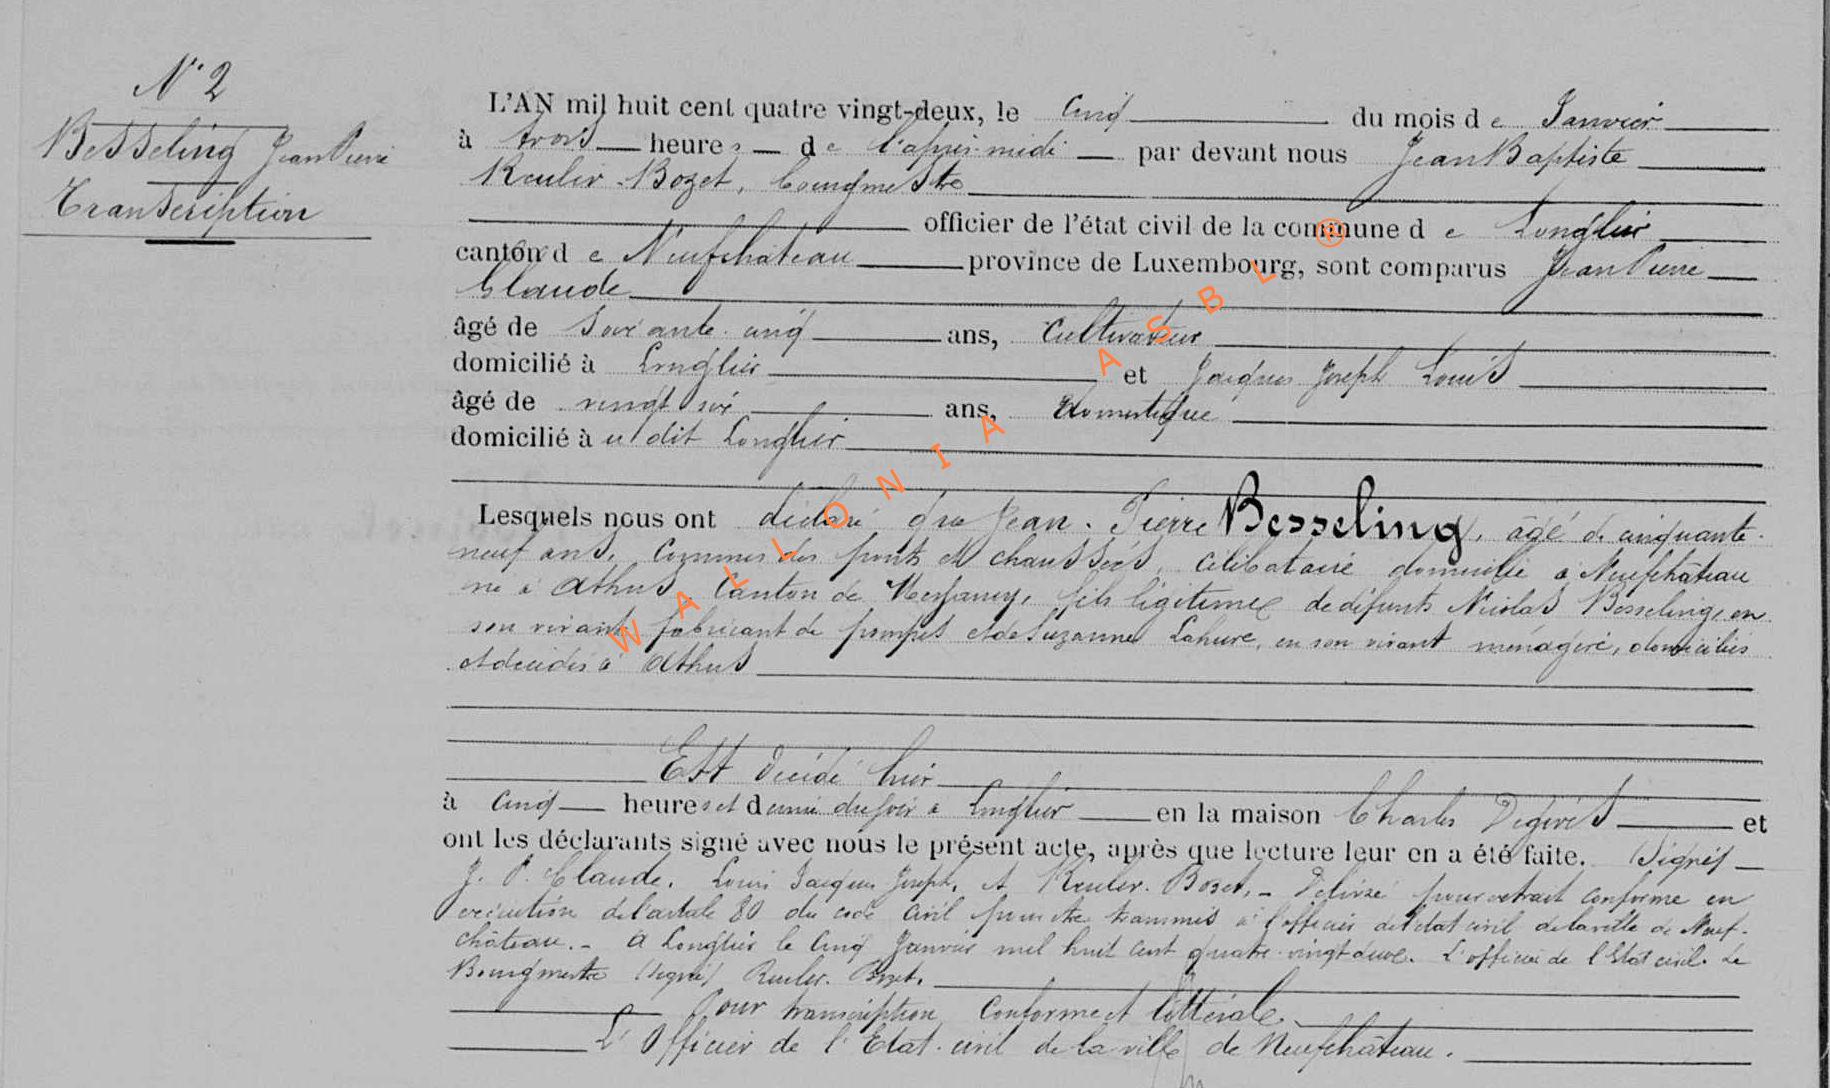 N° 2
Besseling Jean Pierre
Transcription
L'AN mil huit cent quatre vingt-deux, le cinq du mois de Janvier
à trois heures de l'après-midi par devant nous Jean Baptiste
Reuler-Bozet, bourgmestre
officier de l'état civil de la commune de Longlier
canton de Neufchâteau province de Luxembourg, sont comparus Jean Pierre
Claude
âgé de soixante-cinq ans, cultivateur
domicilié à Longlier et Jacques Joseph Louis
âgé de vingt six ans, domestique
domicilié à dit Longlier
Lesquels nous ont déclaré que Jean-Pierre Besseling, âgé de cinquante-
neuf ans, commis des ponts et chaussées, célibataire domicilié à Neufchâteau
né à Athus, Canton de Messancy, fils légitime de défunts Nicolas Besseling, en
son vivant fabricant de pompes et de Suzanne Lahure, en son vivant ménagère, domiciliés
et décédés à Athus
Est décédé hier
à cinq heures et demie du soir à Longlier en la maison Charles Degives et
ont les déclarants signé avec nous le présent acte, après que lecture leur en a été faite. (Signé)
J. P. Claude, Louis Jacques Joseph, et Reuler-Bozet. - Délivré pour extrait conforme en
exécution de l'article 80 du code civil pour être transmis à l'officier de l'état civil de la ville de Neuf-
château. - A Longlier le cinq Janvier mil huit cent quatre-vingt deux. L'officier de l'Etat civil. Le
Bourgmestre (signé) Reuler-Bozet.
Pour transcription conforme et littérale.
L'Officier de l'Etat-civil de la ville de Neufchâteau.
WALLONIA ASBL ®